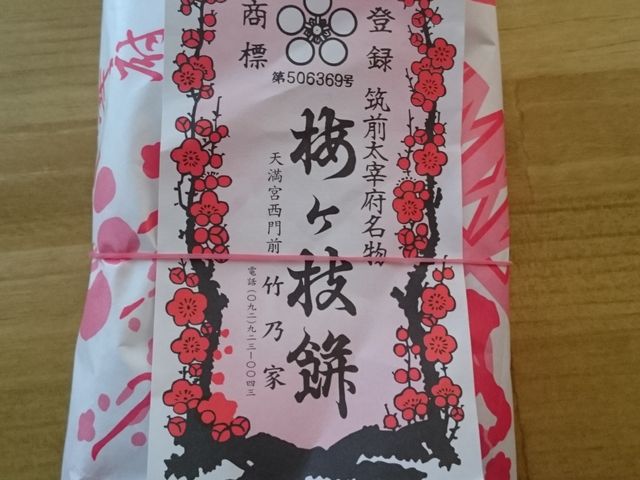 登録
商標
第506369号
筑前太宰府名物
梅ヶ枝餅
天満宮西門前
竹乃家
電話(〇九二)九二三-〇〇四三